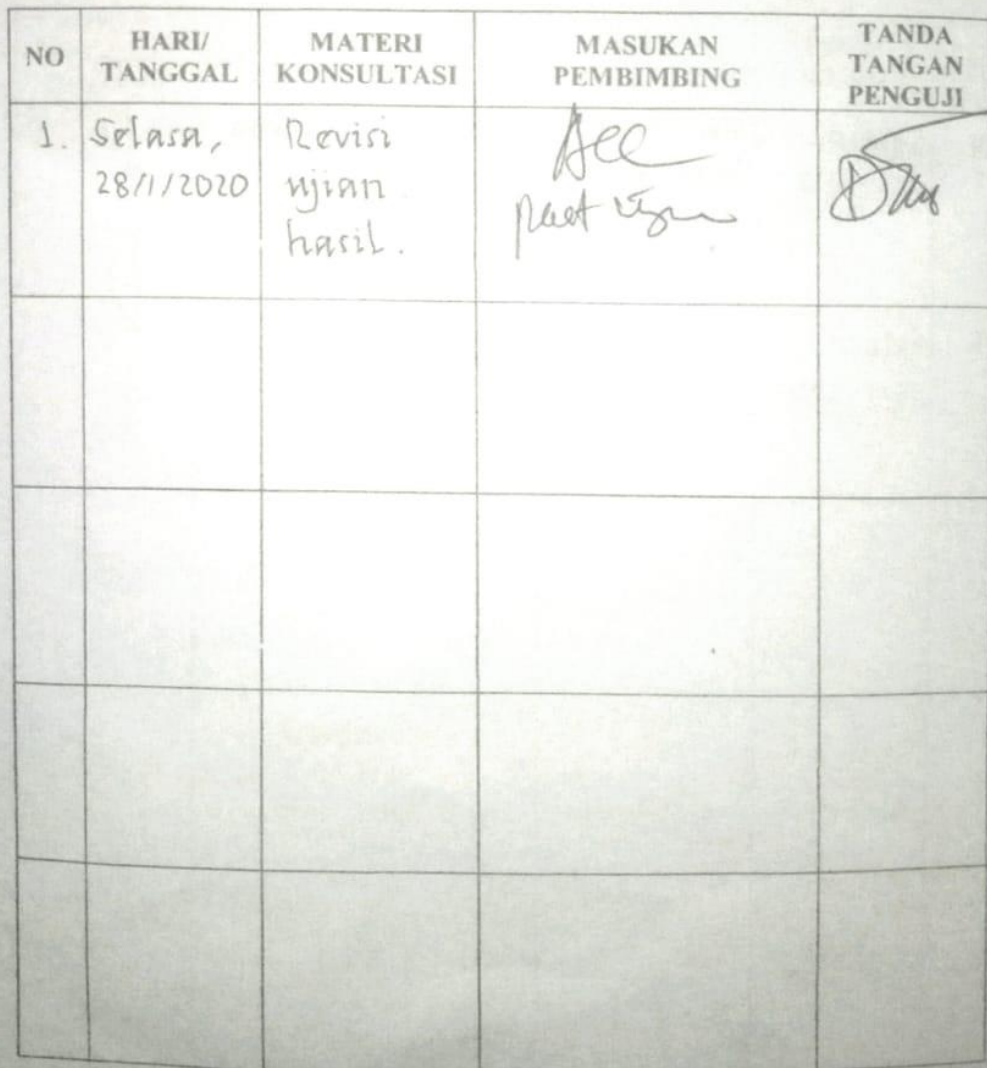 NO
HARI/
TANGGAL
MATERI
KONSULTASI
MASUKAN
PEMBIMBING
TANDA
TANGAN
PENGUJI
1.
Selasa,
28/1/2020
Revisi
ujian
hasil.
Acc